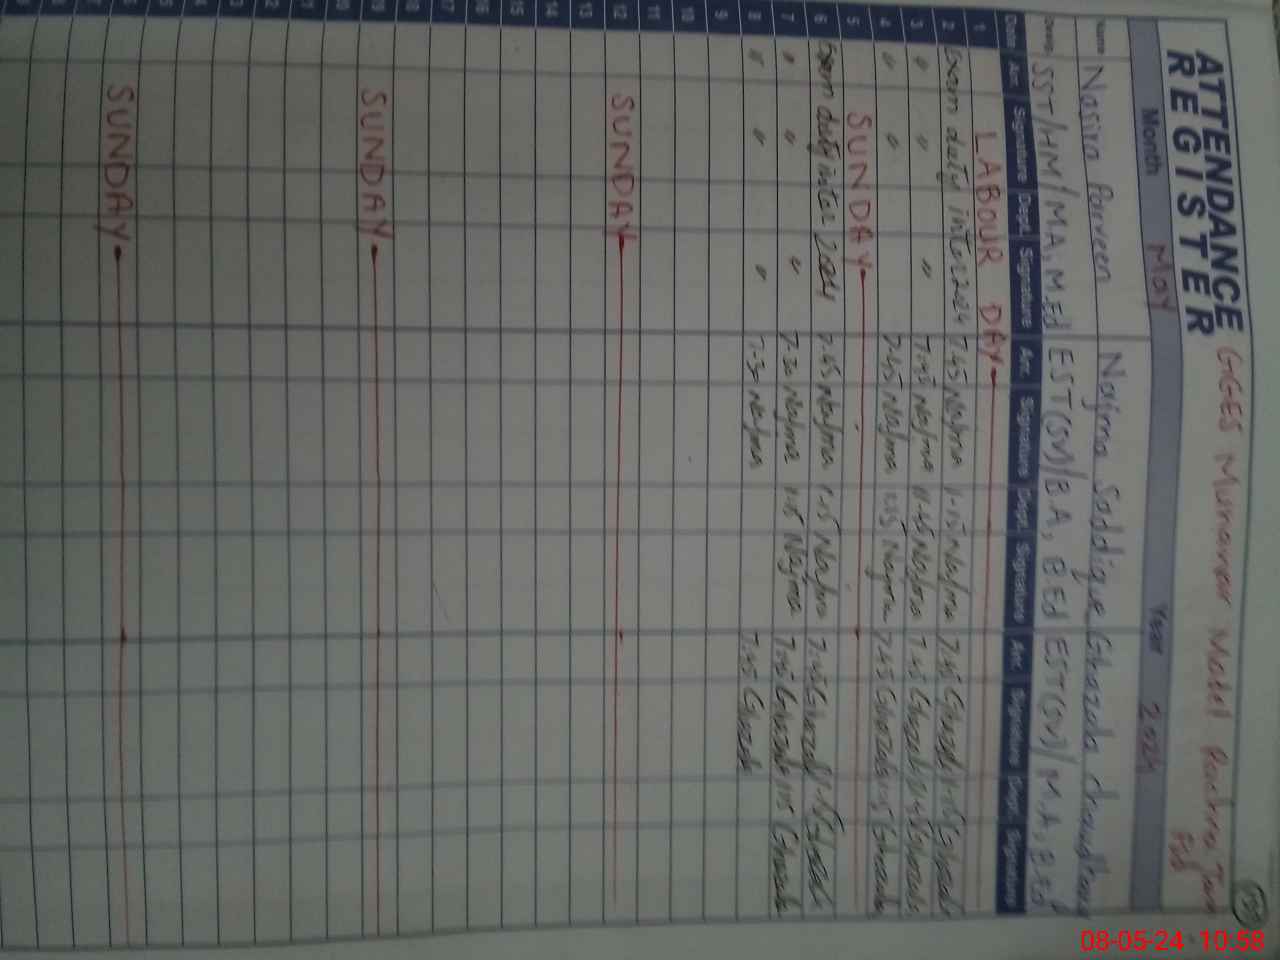 ATTENDANCE REGISTER
GGES Munawar Model
Month May Year 2024
Name Nasira Parveen Najma Saddique Ghazala
SST/HM/MA, M.Ed EST(SV)/B.A, B.Ed EST(SV)/M.A, B.Ed
Date Arr. Signature Dept. Signature Arr. Signature Dept. Signature Arr. Signature Dept. Signature
1 LABOUR DAY
2 Exam duty inter 2024 7.45 Najma 1-15 Najma 7.45 Ghazala 1-15 Ghazala
3 " " " 7.45 Najma 11.45 Najma 7.45 Ghazala Ghazala
4 " " 7.45 Najma 1.15 Najma 7.45 Ghazala 1.15 Ghazala
5 SUNDAY
6 Exam duty inter 2024 7.45 Najma 1-15 Najma 7.45 Ghazala 1-15 Ghazala
7 " " " 7.30 Najma 1.15 Najma 7.45 Ghazala 1.15 Ghazala
8 " " " 7.30 Najma 7.45 Ghazala
9
10
11
12 SUNDAY
13
14
15
16
17
18
19 SUNDAY
20
21
22
23
SUNDAY
08-05-24 10:58